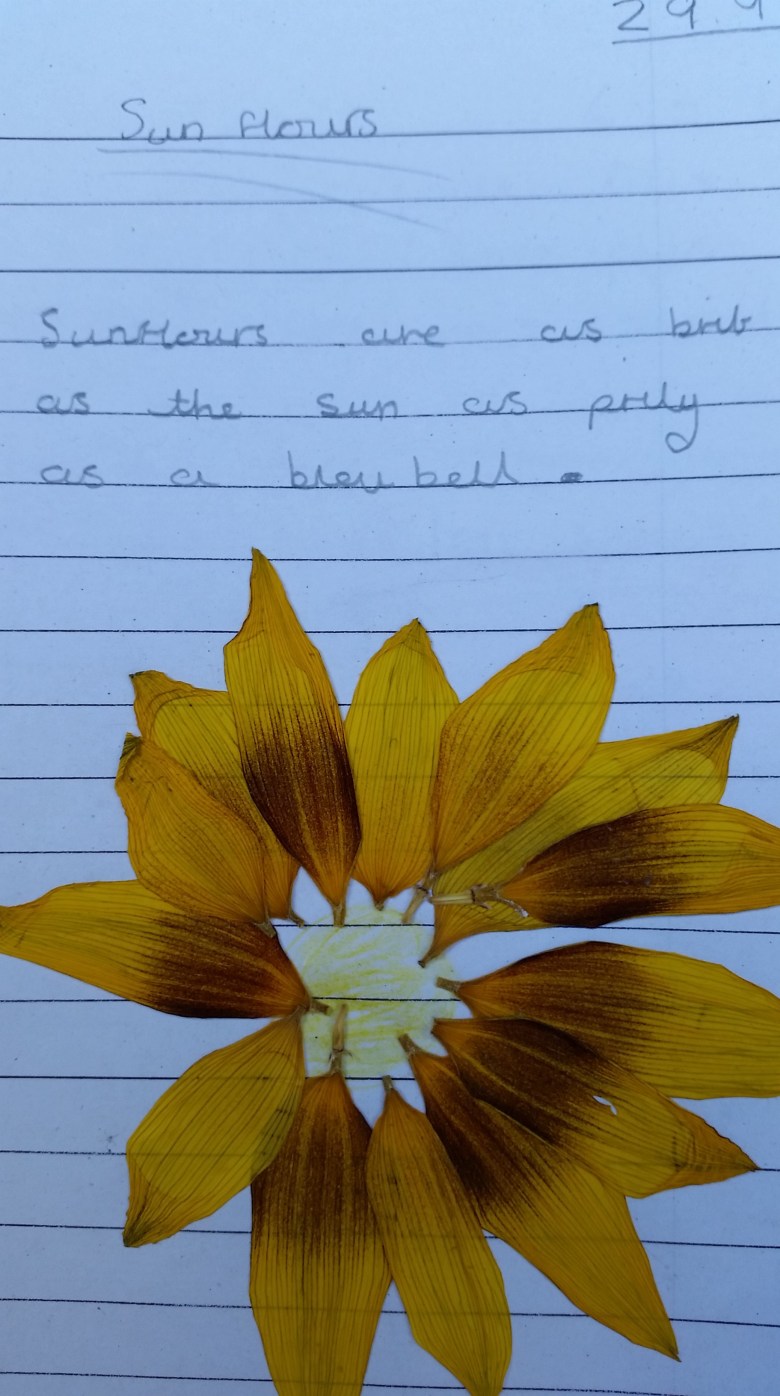 29.9
Sun flours
Sunflours are as brib
as the sun as prily
as a bleu bell.